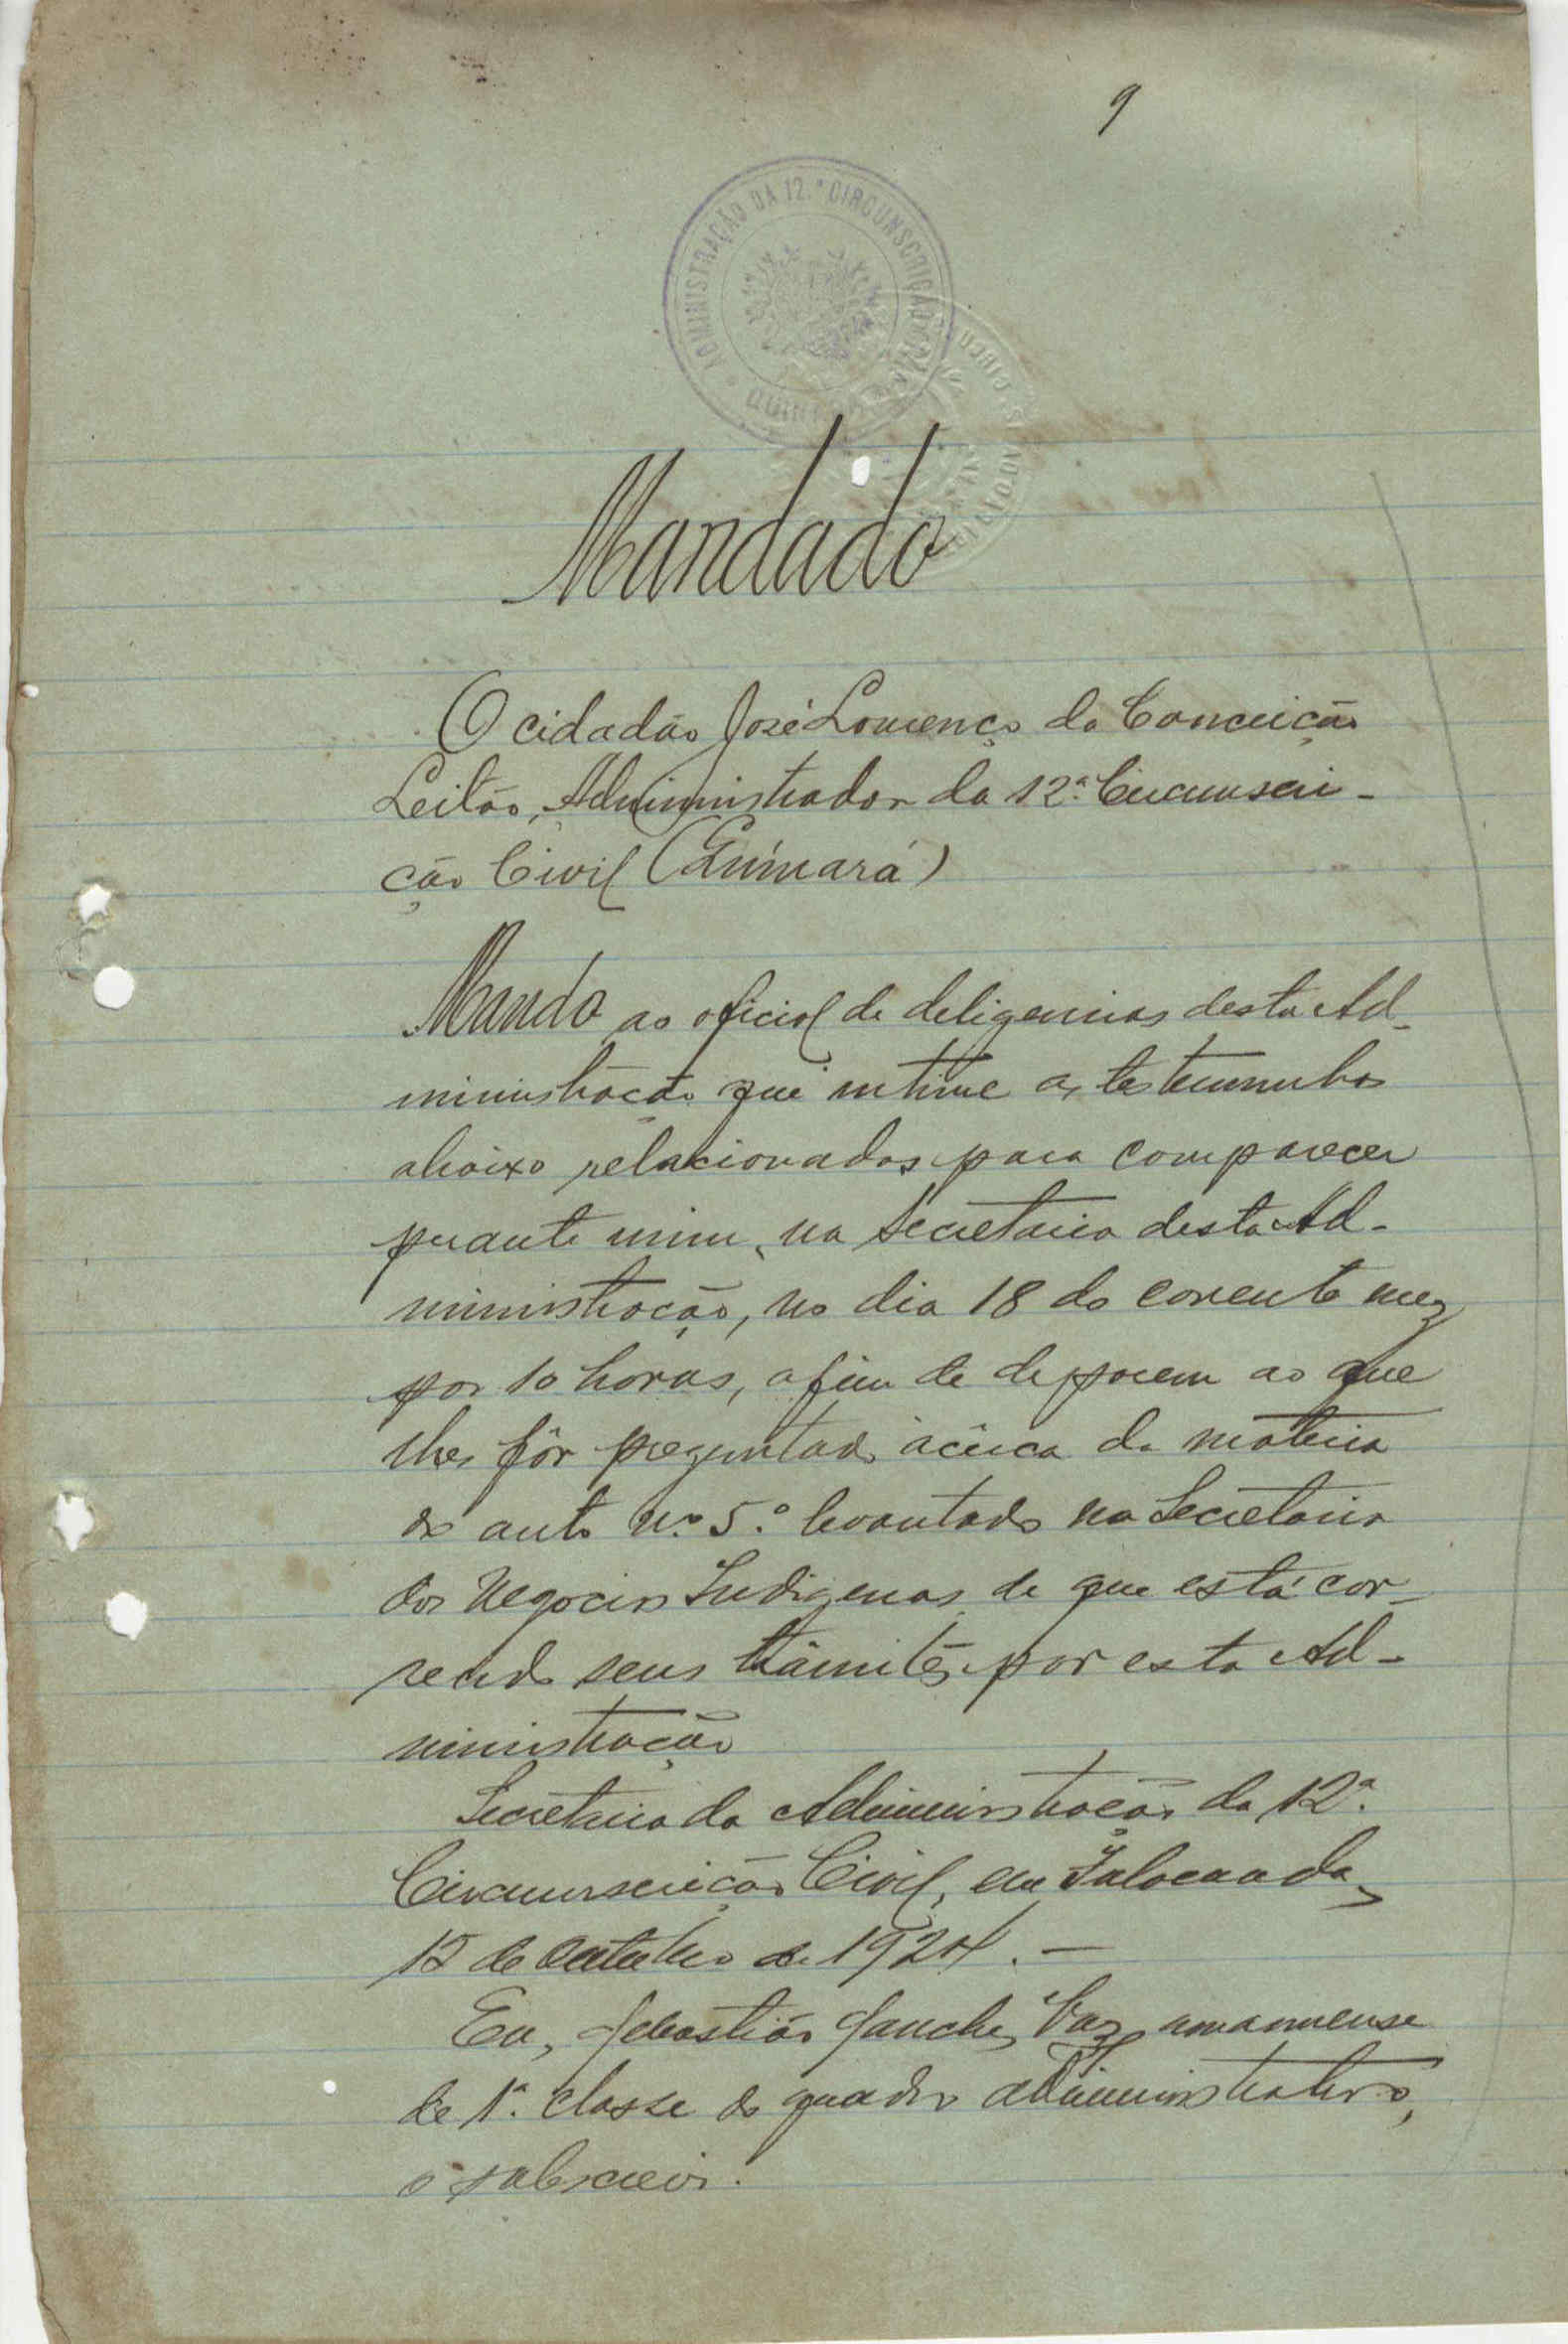 9
ADMINISTRAÇÃO DA 12.ª CIRCUNSCRIÇÃO CIVIL
Mandado
O cidadão José Lourenço da Conceição
Leitão, Administrador da 12ª Circunscri-
ção Civil (Guimará)
Mando ao oficial de deligencias desta Ad-
ministração que intime as testemunhas
abaixo relacionadas para comparecer
perante mim, na Secretaria desta Ad-
ministração, no dia 18 do corrente mez
por 10 horas, afim de deporem ao que
lhes fôr preguntado àcêrca da materia
do auto nº 5º levantado na Secretaria
dos Negocios Indigenas de que está cor-
rendo seus trâmites por esta Ad-
ministração
Secretaria da Administração da 12ª
Circunscrição Civil, em
15 de Outubro de 1924. —
Eu, Sebastião Sanches Vaz, amanuense
de 1ª classe do quadro administrativo,
o subscrevi.